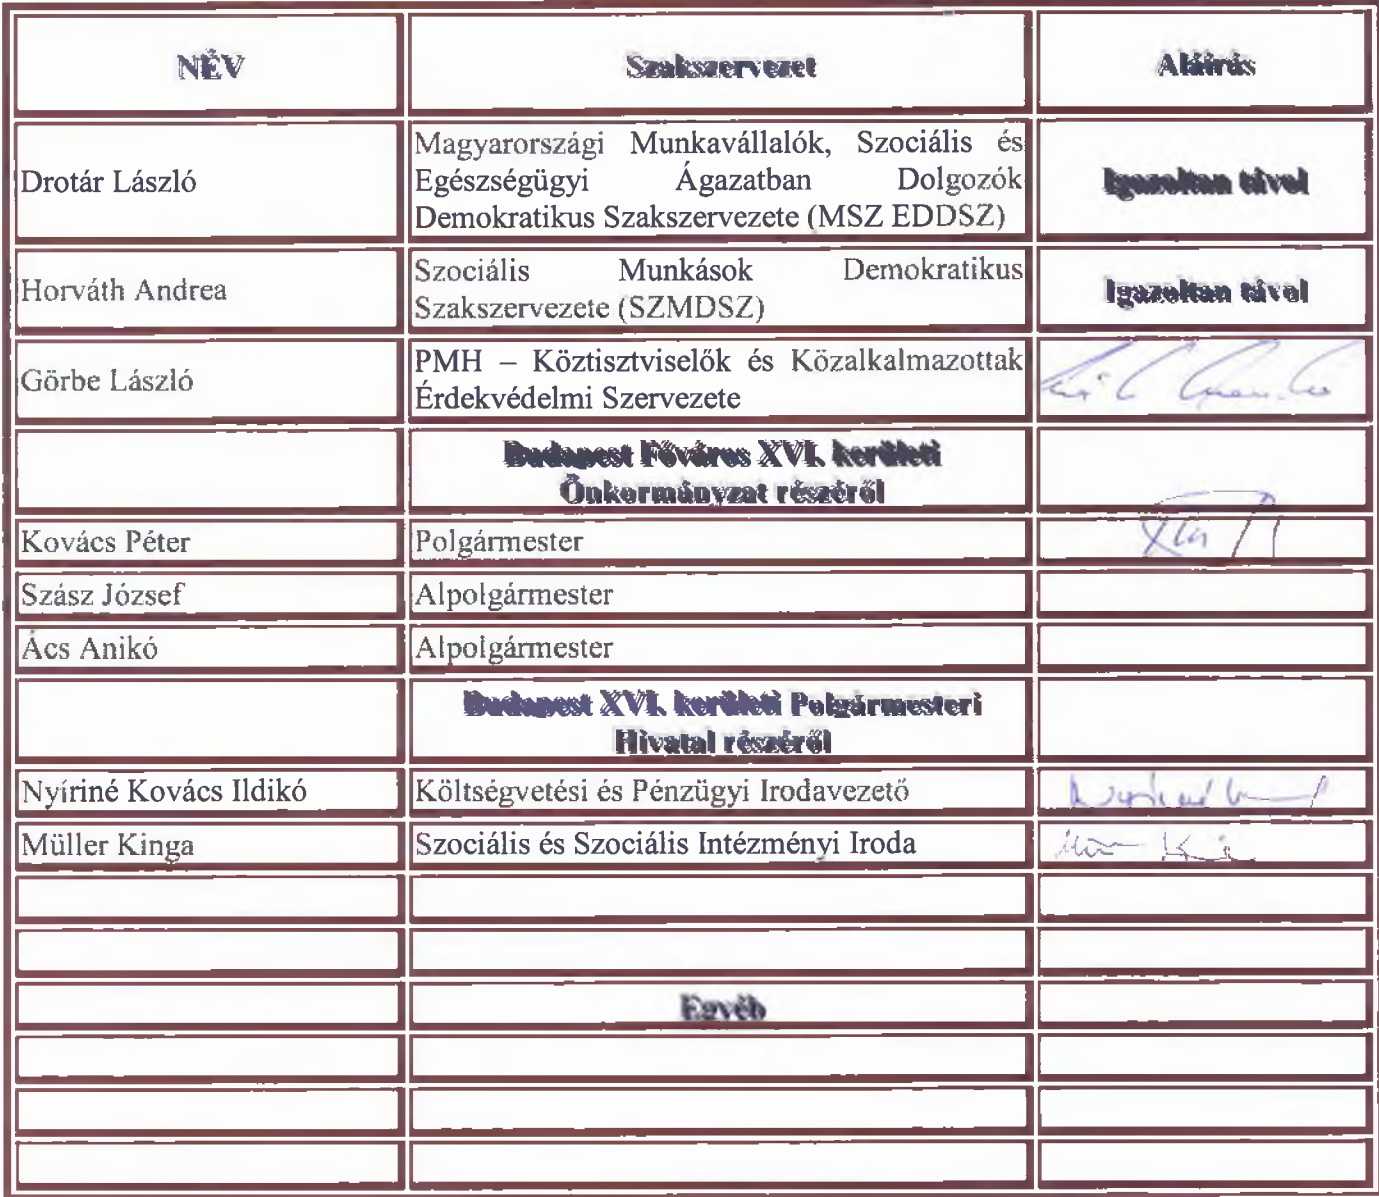 NÉV Szakszervezet Aláírás
Magyarországi Munkavállalók, Szociális és
Drotár László Egészségügyi Ágazatban Dolgozók Igazoltan távol
Demokratikus Szakszervezete (MSZ EDDSZ)
Horváth Andrea Szociális Munkások Demokratikus Igazoltan távol
Szakszervezete (SZMDSZ)
Görbe László PMH – Köztisztviselők és Közalkalmazottak
Érdekvédelmi Szervezete
Budapest Főváros XVI. kerületi
Önkormányzat részéről
Kovács Péter Polgármester
Szász József Alpolgármester
Ács Anikó Alpolgármester
Budapest XVI. kerületi Polgármesteri
Hivatal részéről
Nyíriné Kovács Ildikó Költségvetési és Pénzügyi Irodavezető
Müller Kinga Szociális és Szociális Intézményi Iroda
Egyéb